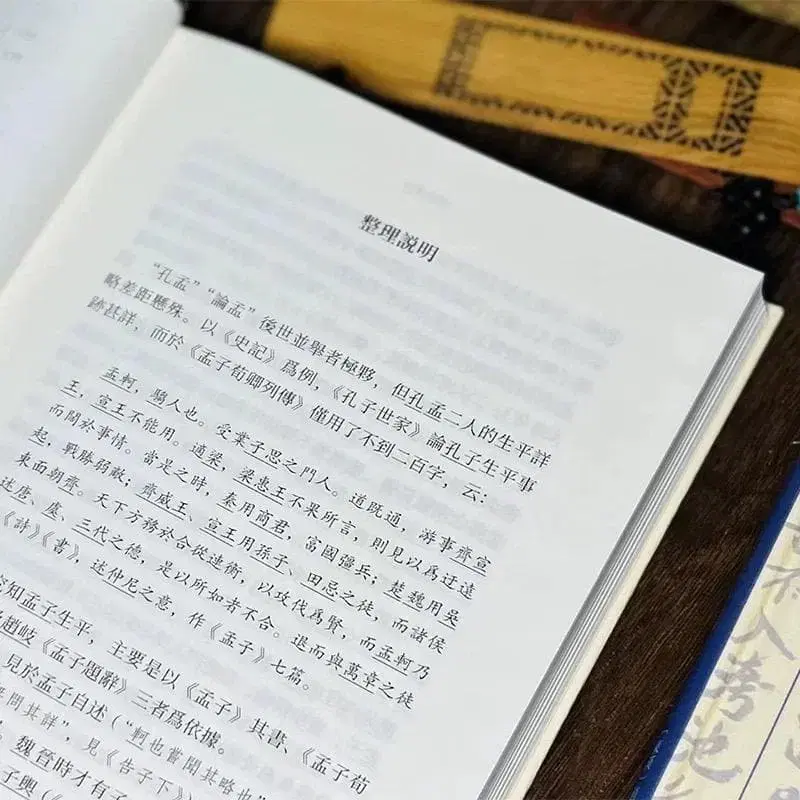 整理說明
“孔孟”“論孟”後世並舉者極夥，但孔孟二人的生平詳
略差距懸殊。以《史記》爲例，《孔子世家》論孔子生平事
跡甚詳，而於《孟子荀卿列傳》僅用了不到二百字，云：
孟軻，騶人也。受業子思之門人。道既通，游事齊宣
王，宣王不能用。適梁，梁惠王不果所言，則見以爲迂遠
而闊於事情。當是之時，秦用商君，富國彊兵；楚魏用吳
起，戰勝弱敵；齊威王、宣王用孫子、田忌之徒，而諸侯
東面朝齊。天下方務於合從連衡，以攻伐爲賢，而孟軻乃
述唐、虞、三代之德，是以所如者不合。退而與萬章之徒
《詩》《書》，述仲尼之意，作《孟子》七篇。
知孟子生平，主要是以《孟子》其書、《孟子荀
趙岐《孟子題辭》三者爲依據。
見於孟子自述（“軻也嘗聞其略也”
聞其詳”，見《告子下》）
魏晉時才有子
子輿（《